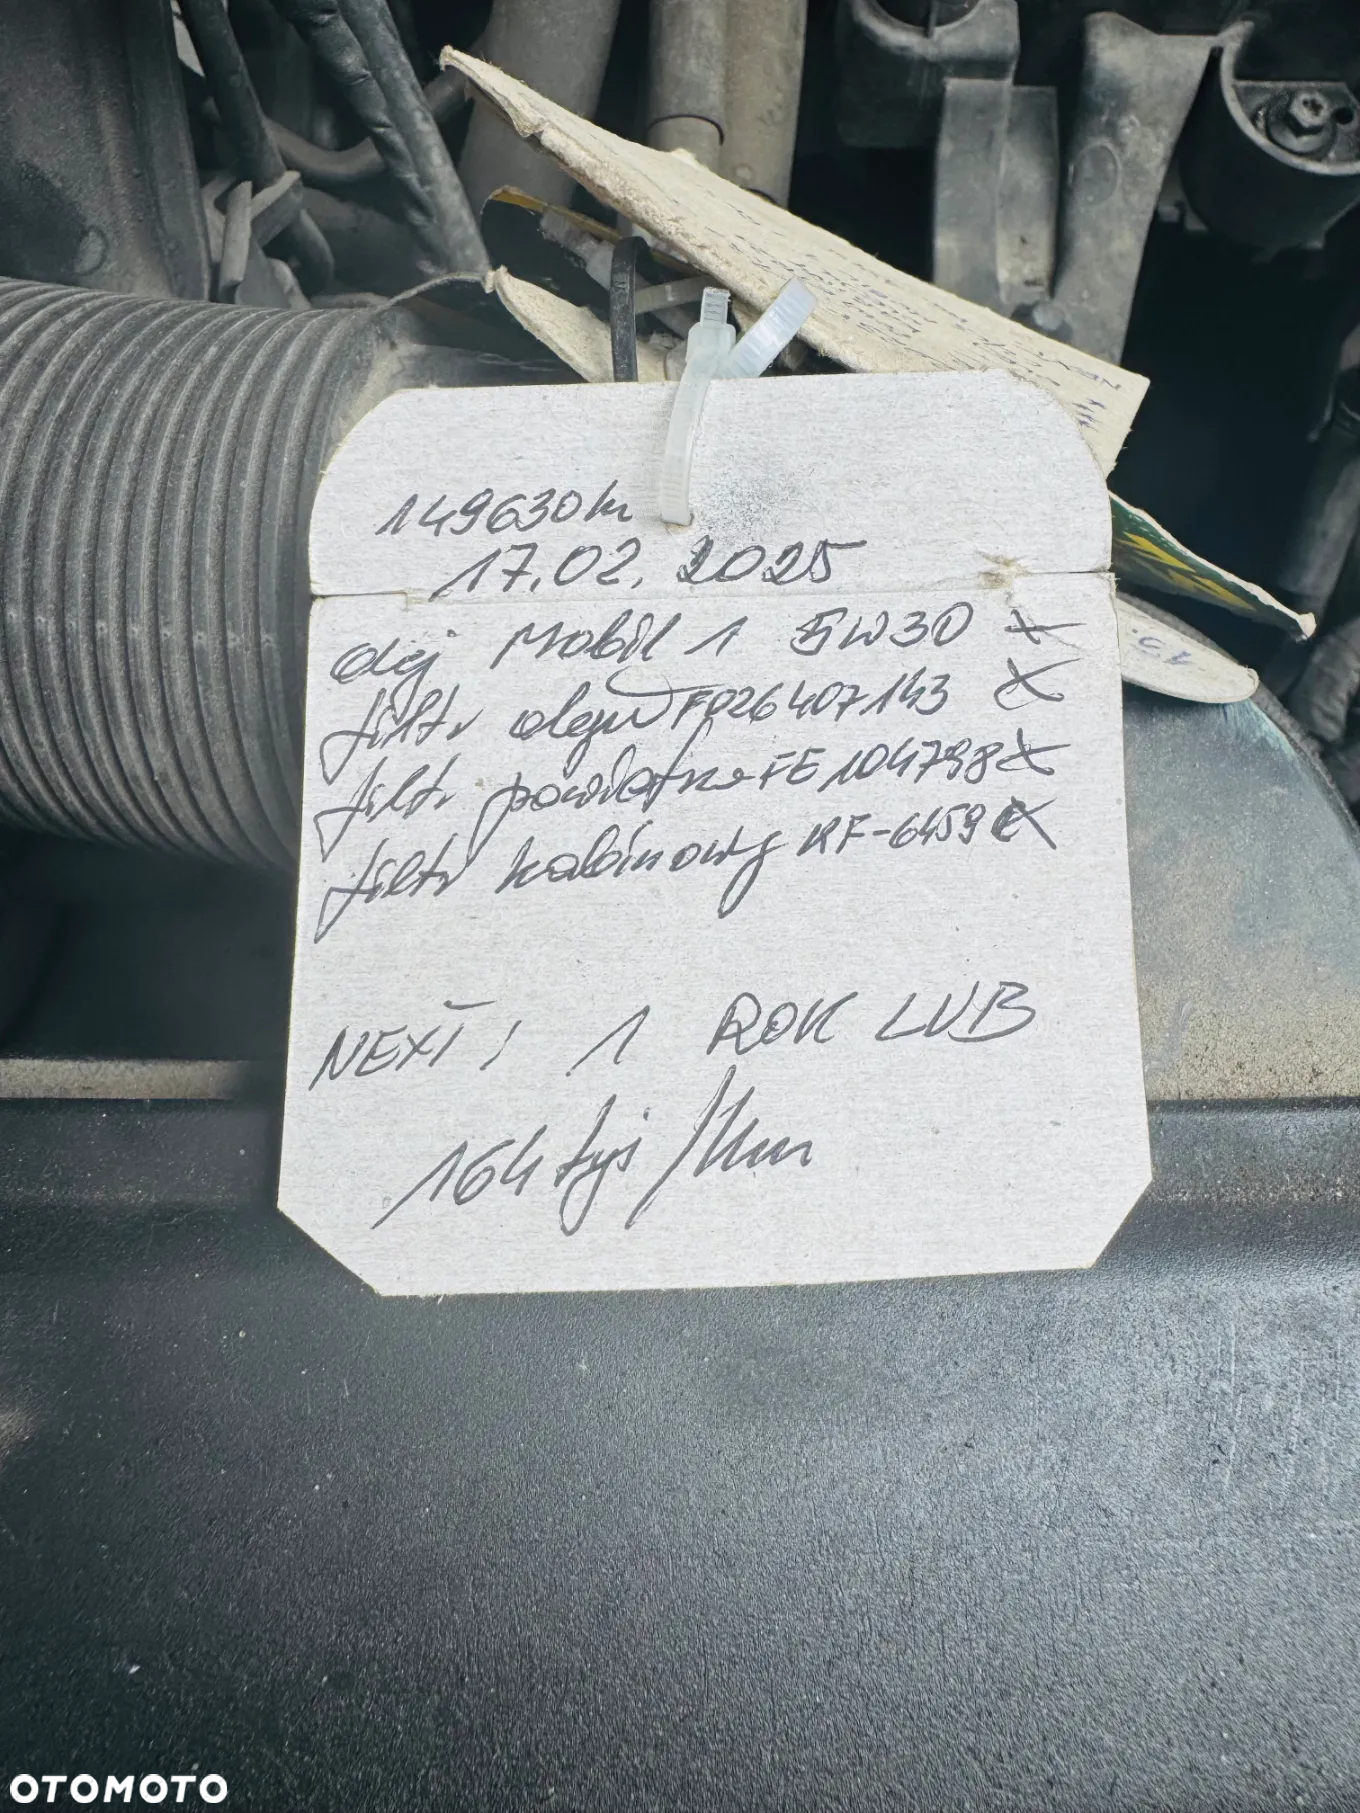 149630km
17.02.2025
olej Mobil 1 5W30 X
filtr oleju F026407143 X
filtr powietrza FE104798 X
filtr kabinowy RF-6459 X
NEXT: 1 ROK LUB
164 tyś/km
OTOMOTO